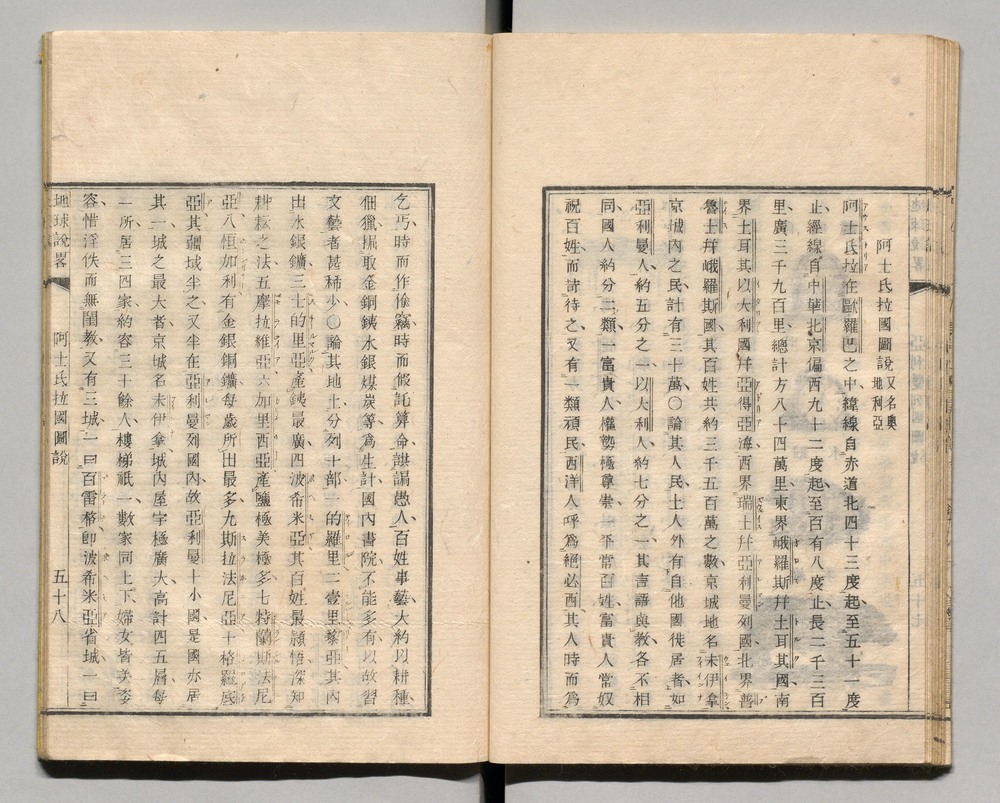 阿士氐拉國圖說 又名奧地利亞
阿士氐拉在歐羅巴之中緯線自赤道北四十三度起至五十一度
止經線自中華北京偏西九十二度起至百有八度止長二千三百
里廣三千九百里總計方八十四萬里東界峨羅斯幷土耳其國南
界土耳其以大利國幷亞得亞海西界瑞士幷亞利曼列國北界普
魯士幷峨羅斯國其百姓共約三千五百萬之數京城地名未伊拿
京城內之民計有三十萬○論其人民土人外有自他國徙居者如
亞利曼人約五分之一以大利人約七分之一其言語與教各不相
同國人約分二類一富貴人權勢極尊崇一平常百姓富貴人常奴
祝百姓而苛待之又有一類頑民西洋人呼爲絕必西其人時而爲
乞丐時而作偸竊時而假託算命誆騙愚人百姓事藝大約以耕種
佃獵掘取金銅銕水銀煤炭等為生計國內書院不能多有以故習
文藝者甚稀少○論其地土分列十部一的羅里二壹里黎亞其內
出水銀鑛三士的里亞產銕最廣四波希米亞其百姓最穎悟深知
耕耘之法五摩拉維亞六加里西亞產鹽極美極多七特蘭斯法尼
亞八恒加利有金銀銅鑛每歲所出最多九斯拉法尼亞十格羅底
亞其疆域半之又半在亞利曼列國內故亞利曼十小國是國亦居
其一城之最大者京城名未伊拿城內屋宇極廣大高計四五層每
一所居三四家約容三十餘人樓梯祇一數家同上下婦女皆美姿
容惜淫佚而無閨教又有三城一曰百雷格卽波希米亞省城一曰
地球說畧 阿士氐拉國圖說 五十八